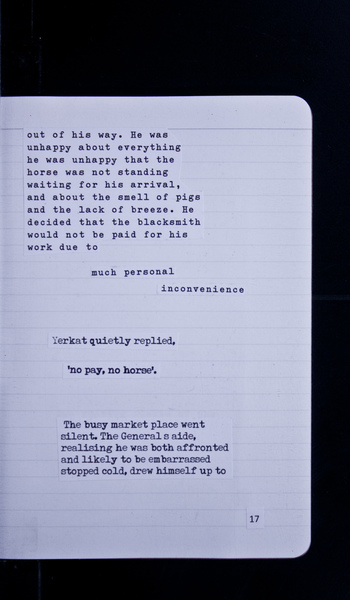 out of his way. He was
unhappy about everything
he was unhappy that the
horse was not standing
waiting for his arrival,
and about the smell of pigs
and the lack of breeze. He
decided that the blacksmith
would not be paid for his
work due to
much personal
inconvenience
Yerkat quietly replied,
'no pay, no horse'.
The busy market place went
silent. The General s aide,
realising he was both affronted
and likely to be embarrassed
stopped cold, drew himself up to
17